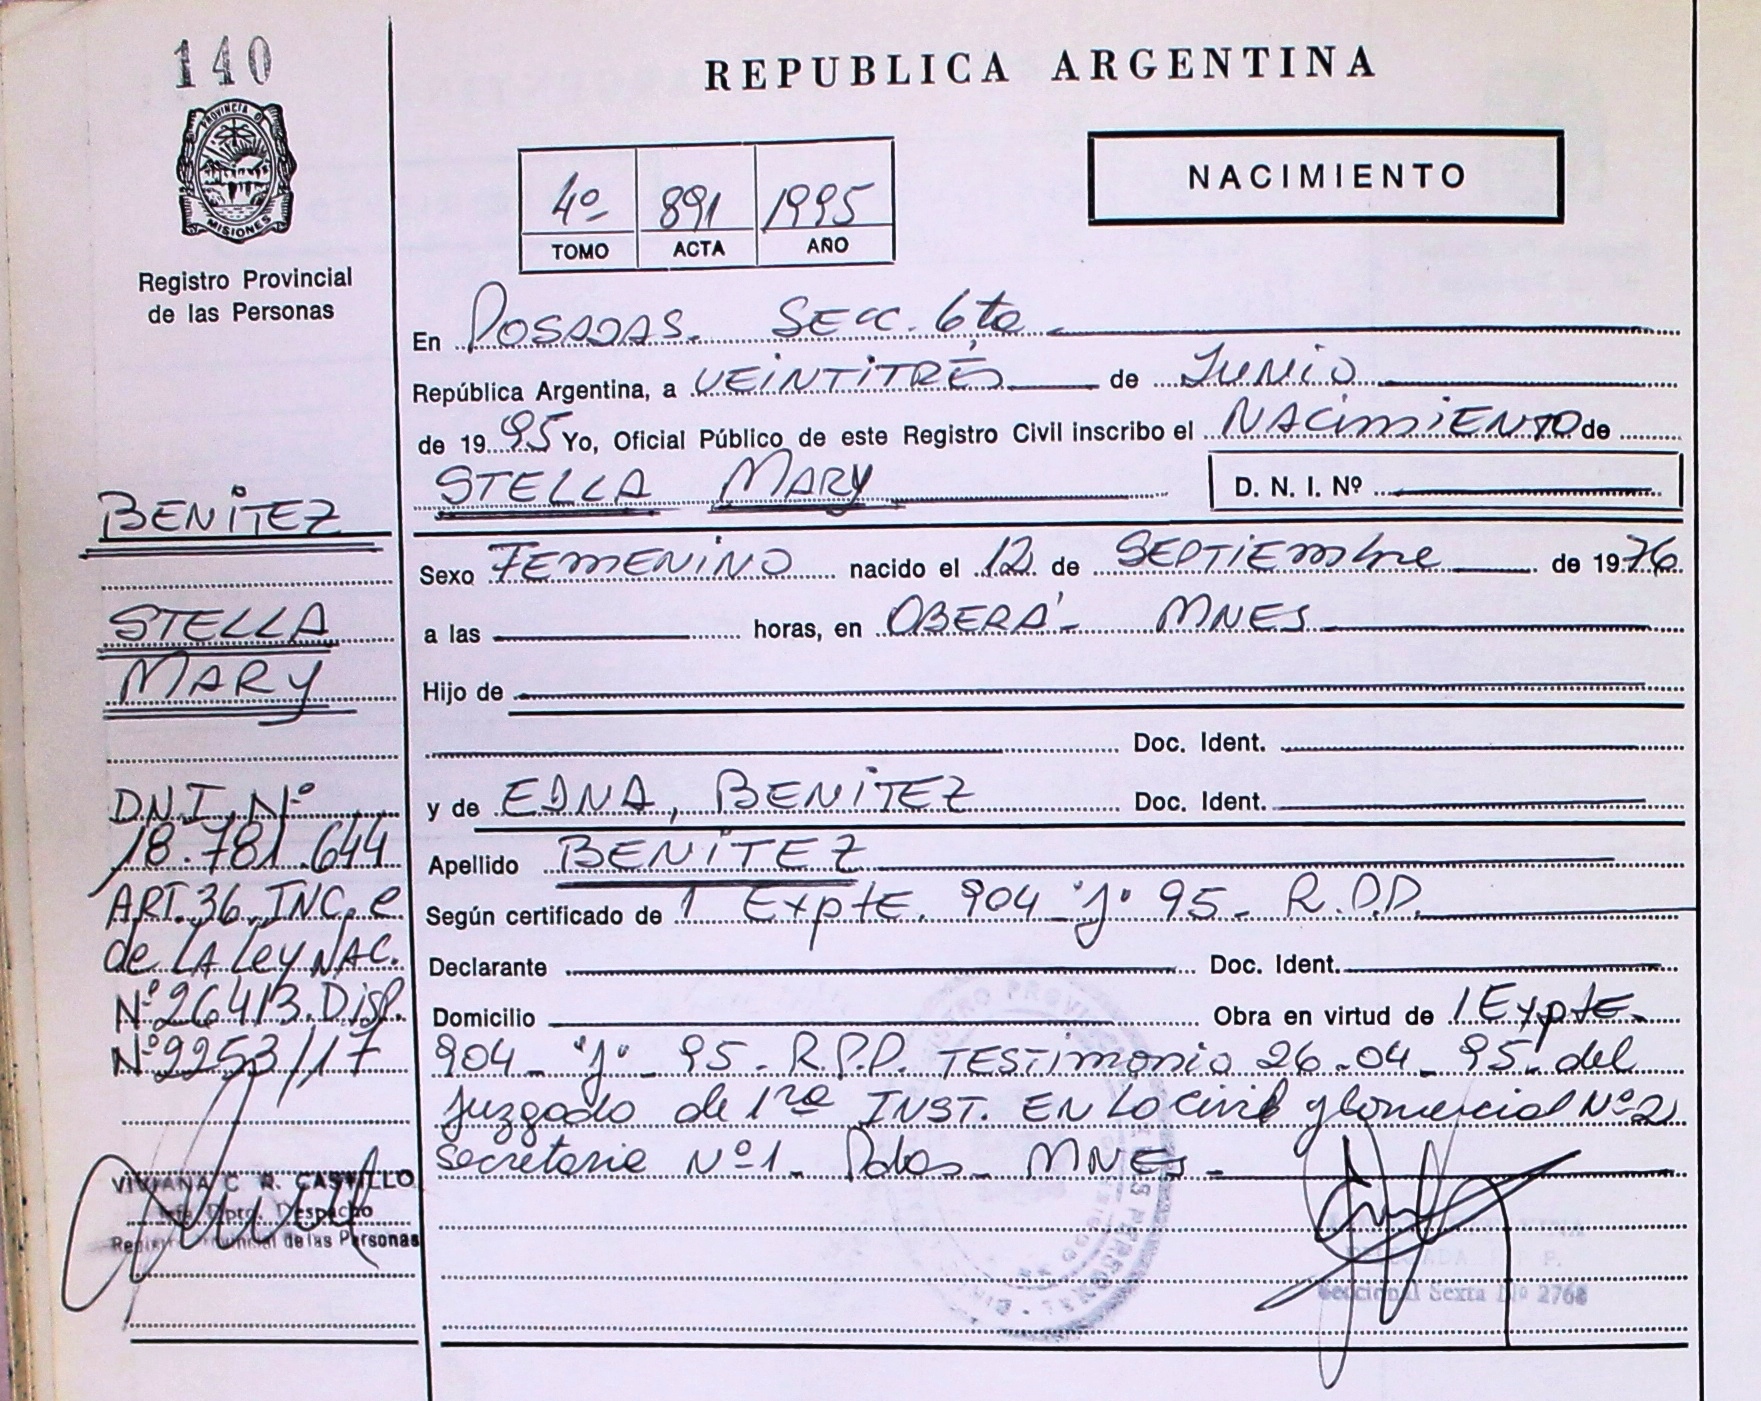 140
REPUBLICA ARGENTINA
PROVINCIA D
MISIONES
Registro Provincial
de las Personas
4º 891 1995
TOMO ACTA AÑO
NACIMIENTO
En POSADAS. SECC. 6ta
República Argentina, a VEINTITRÉS de JUNIO
de 1995 Yo, Oficial Público de este Registro Civil inscribo el NACIMIENTO de
STELLA MARY D. N. I. Nº
BENITEZ
STELLA
MARY
Sexo FEMENINO nacido el 12 de SEPTIEMbre de 1976
a las horas, en OBERÁ - MNES
Hijo de
Doc. Ident.
y de EDNA, BENITEZ Doc. Ident.
Apellido BENITEZ
Según certificado de 1 Expte. 904 "J" 95 - R.P.P.
Declarante Doc. Ident.
Domicilio Obra en virtud de 1 Expte.
904 - "J" - 95 - R.P.P. TESTIMONIO 26-04-95. del
Juzgado de 1ra INST. EN Lo Civil y Comercial Nº 2
Secretaria Nº 1 - Pdas - MNES -
D.N.I. Nº
18.781.644
ART. 36. INC. e
de LA Ley NAC.
Nº 26413. Disp.
Nº 2253/17
VIVIANA C R. CASTILLO
Jefa Dpto. Despacho
Registro Provincial de las Personas
Seccional Sexta Nº 2768